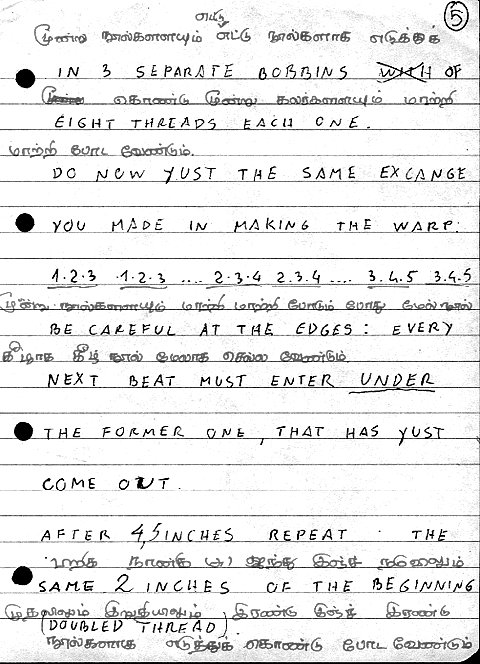 எட்டு
5
மூன்று நூல்களையும் எட்டு நூல்களாக எடுத்துக்
IN 3 SEPARATE BOBBINS WITH OF
கொண்டு மூன்று கலர்களையும் மாற்றி
EIGHT THREADS EACH ONE.
மாற்றி போட வேண்டும்.
DO NOW YUST THE SAME EXCANGE
YOU MADE IN MAKING THE WARP:
1.2.3 1.2.3 .... 2.3.4 2.3.4 .... 3.4.5 3.4.5
மூன்று நூல்களையும் மாற்றி மாற்றி போடும் போது மேல் நூல்
BE CAREFUL AT THE EDGES: EVERY
கீழாக கீழ் நூல் மேலாக செல்ல வேண்டும்
NEXT BEAT MUST ENTER UNDER
THE FORMER ONE, THAT HAS YUST
COME OUT.
AFTER 4,5 INCHES REPEAT THE
நான்கு ஐந்து இன்ச்
SAME 2 INCHES OF THE BEGINNING
முதலிலும் இறுதியிலும் இரண்டு இன்ச் இரண்டு
(DOUBLED THREAD)
நூல்களாக எடுத்துக் கொண்டு போட வேண்டும்